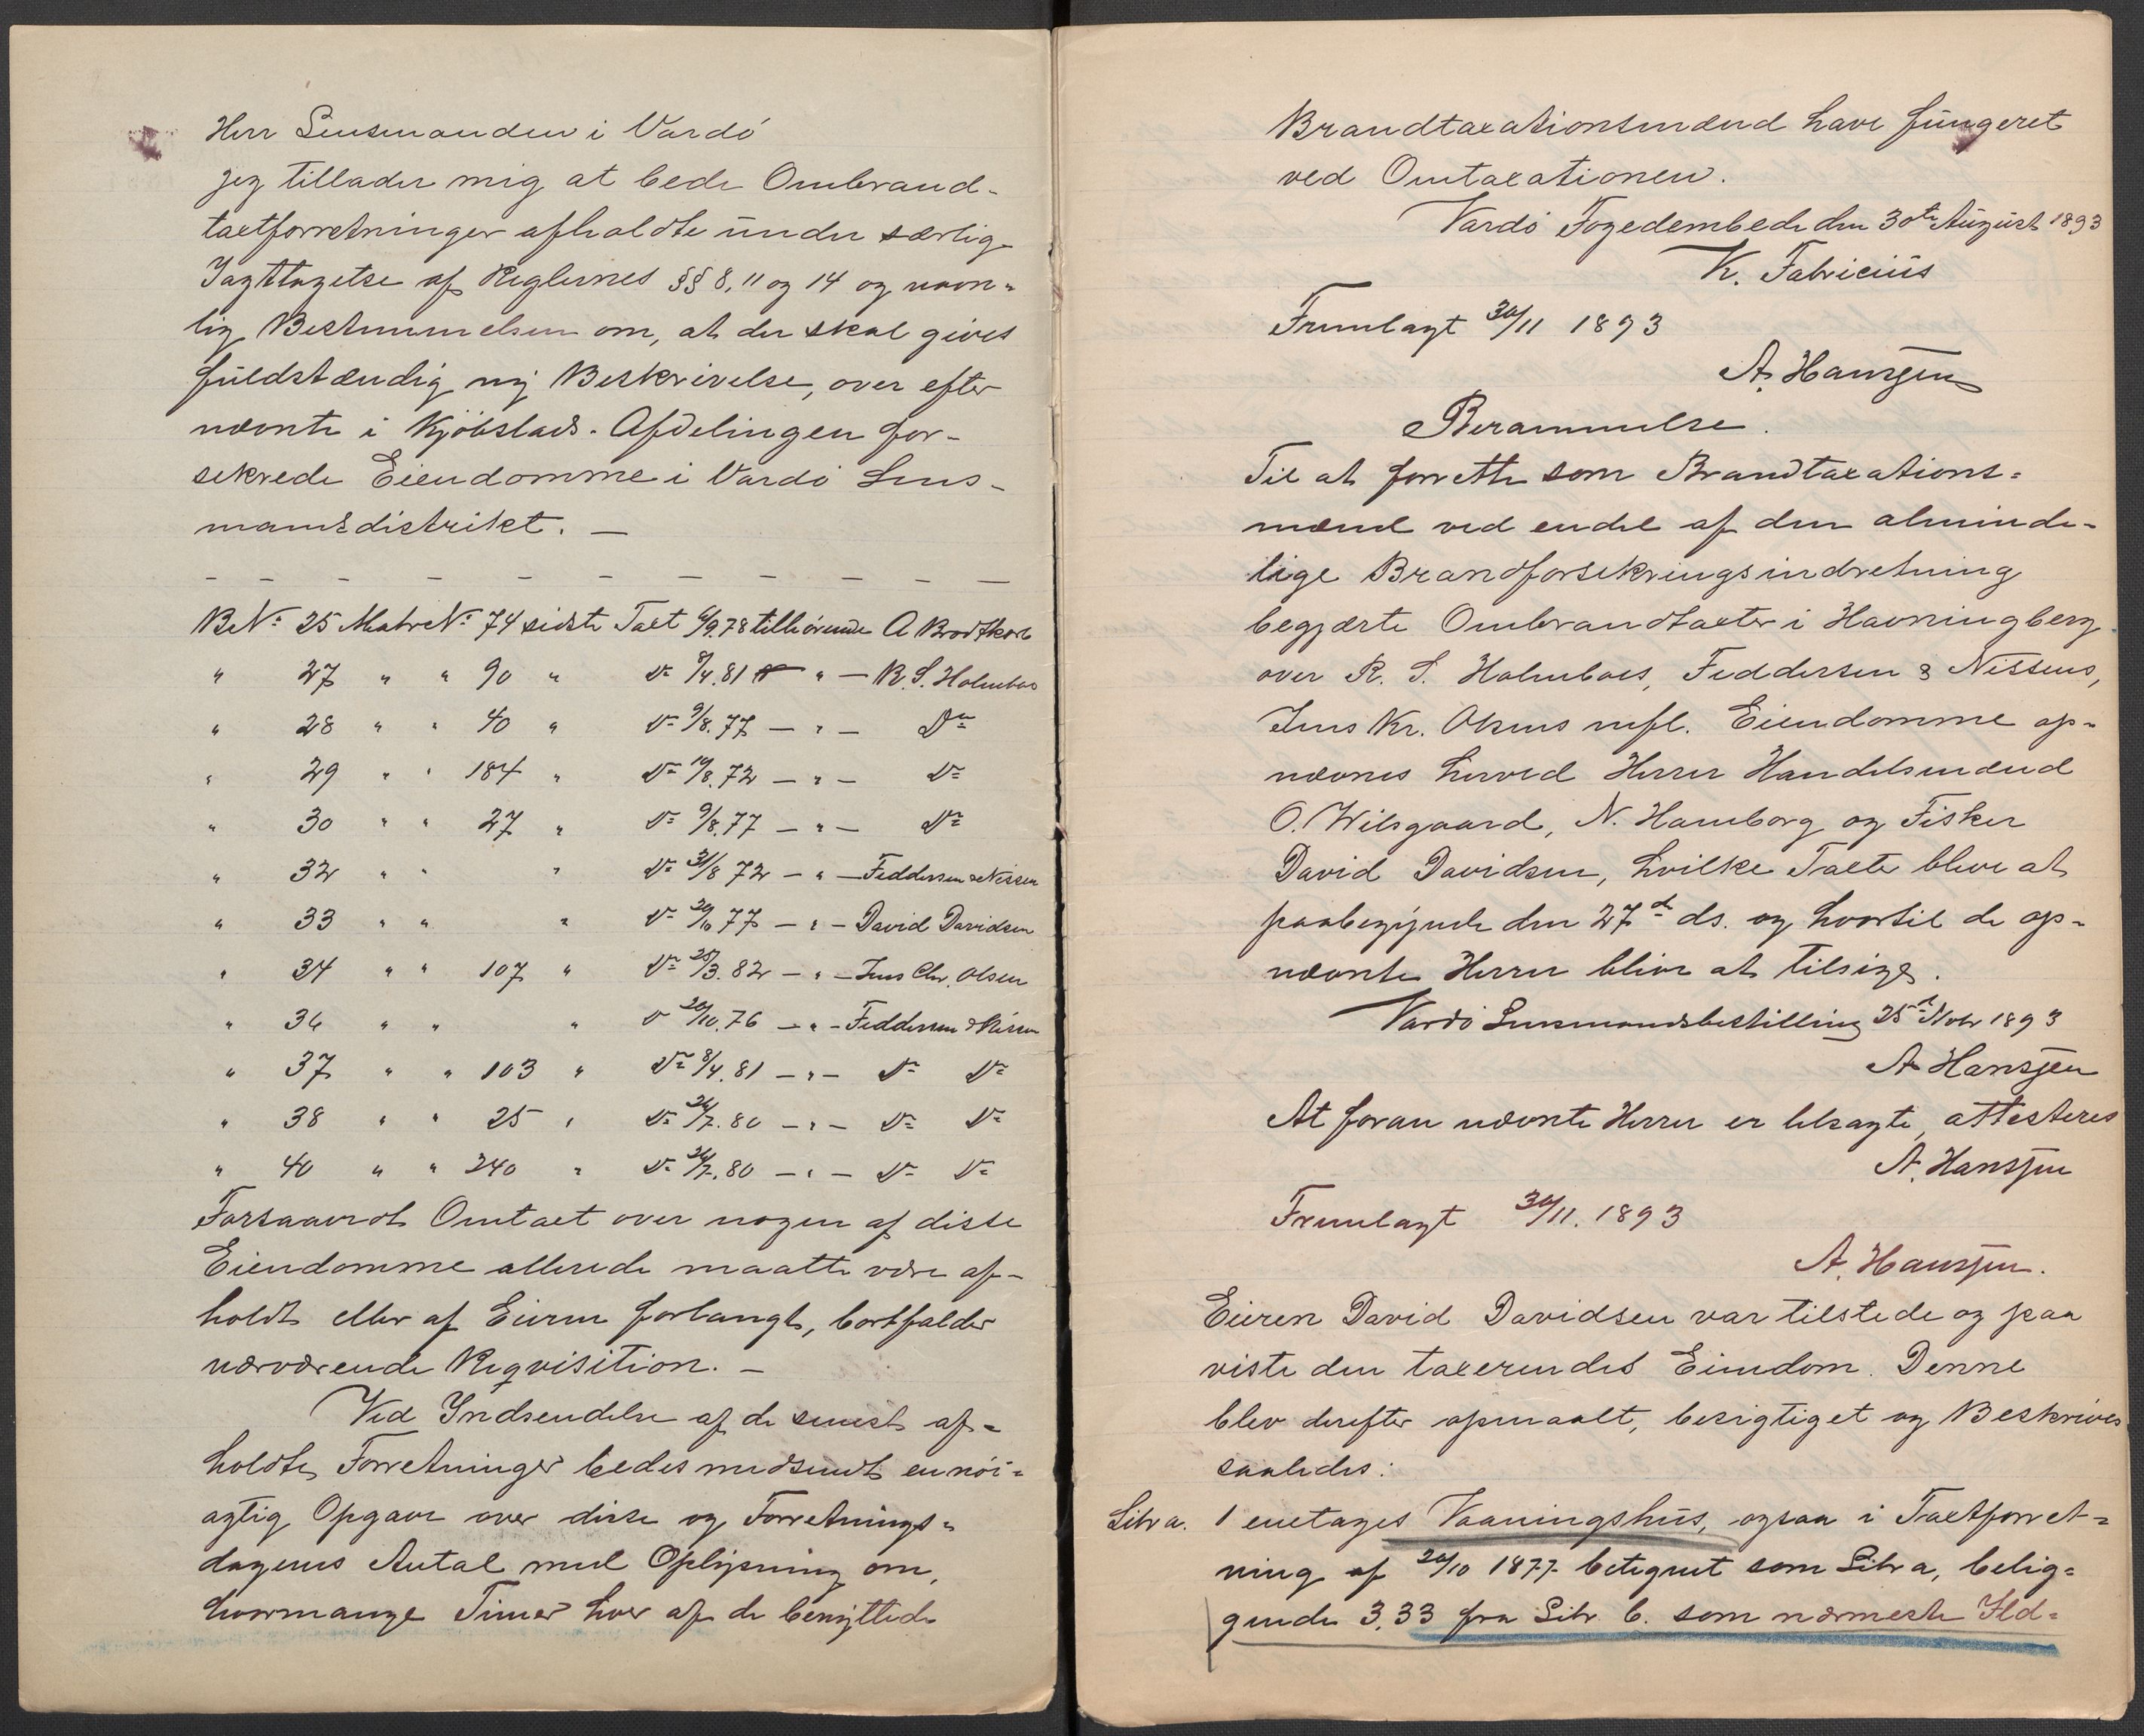 Herr Lensmanden i Vardö
Jeg tillader mig at bede Ombrand-
taxtforretninger afholdte under særlig
Iagttagelse af Reglernes §§ 8, 11 og 14 og navn-
lig Bestemmelsen om, at der skal gives
fuldstændig ny Beskrivelse, over efter
nævnte i Kjöbstads-Afdelingen for-
sekrede Eiendomme i Vardö Lens-
mandsdistrikt. —
BNo 25 Matr No 74 sidste Taxt 6/9.78 tilhörende A Brodtkorb
" 27 " " 90 " Do 8/4.81 " — R. S. Holmboe
" 28 " " 40 " Do 9/8.77 — " — Do
" 29 " " 184 " Do 19/8.72 — " — Do
" 30 " " 27 " Do 9/8.77 — " — Do
" 32 " " " Do 31/8 72 — " — Feddersen & Nissen
" 33 " " " Do 20/10 77 — " — David Davidsen
" 34 " " 107 " Do 25/3.82 — " — Jens Chr. Olsen
" 36 " " " D 20/10.76 — " — Feddersen & Nissen
" 37 " " 103 " Do 8/4.81 — " — Do Do
" 38 " " 25 " Do 26/7.80 — " — Do Do
" 40 " " 240 " Do 26/7.80 — " — Do Do
Forsaavidt Omtaxt over nogen af disse
Eiendomme allerede maatte være af-
holdt eller af Eieren forlangt, bortfalder
nærværende Reqvisition. —
Ved Indsendelse af de senest af-
holdte Forretninger bedes medsendt en nöi-
agtig Opgave over disse og Forretnings-
dagenes Antal med Oplysning om,
hvormange Timer hver af de benyttede
Brandtaxationsmænd have fungeret
ved Omtaxationen.
Vardö Fogedembede den 30te August 1893
K. Fabricius
Fremlagt 30/11 1893
A. Hanssen
Berammelse.
Til at forrette som Brandtaxations-
mænd ved endel af den alminde-
lige Brandforsikringsindretning
begjærte Ombrandtaxter i Havningberg
over R. S. Holmboes, Feddersen & Nissens,
Jens Kr. Olsens mfl. Eiendomme op-
nævnes herved Herrer Handelsmænd
O. Wilsgaard, N. Hamborg og Fisker
David Davidsen, hvilke Taxter bleve at
paabegynde den 27de ds. og hvortil de op-
nævnte Herrer blive at tilsige.
Vardö Lensmandsbestilling 25de Novbr 1893
A Hanssen
At foran nævnte Herrer er tilsagte, attesteres
A. Hanssen
Fremlagt 30/11. 1893
A. Hanssen.
Eieren David Davidsen var tilstede og paa
viste den taxerendes Eiendom. Denne
blev derefter opmaalt, besigtiget og Beskrives
saaledes:
Litr a. 1 enetages Vaaningshus, ogsaa i Taxtforret-
ning af 20/10 1877 betegnet som Litr a, belig-
gende 3,33 fra Litr b. som nærmeste Ild-